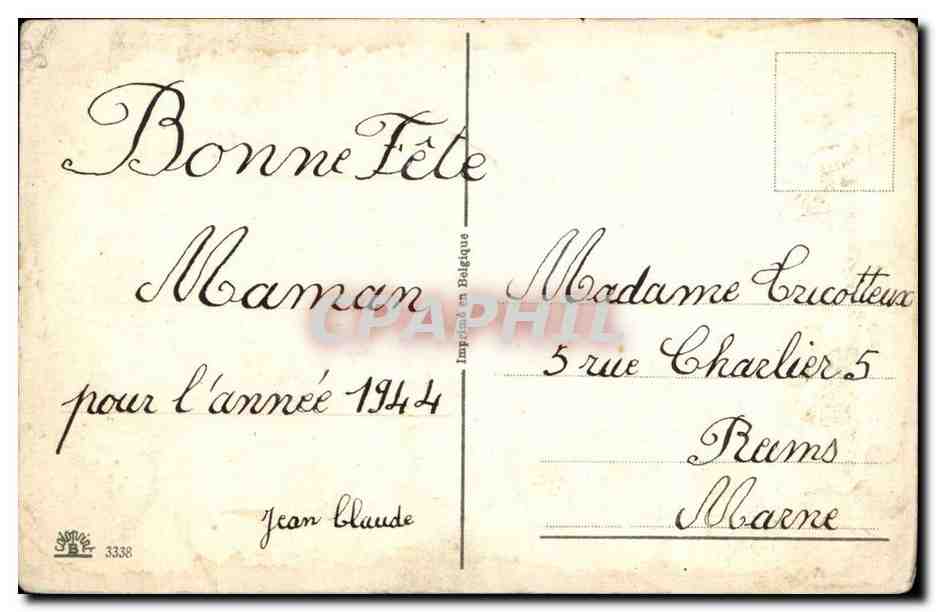 Bonne Fête
Maman
pour l'année 1944
Jean Claude
3338
Imprimé en Belgique
CPAPHIL
Madame Tricotteux
5 rue Charlier 5
Reims
Marne